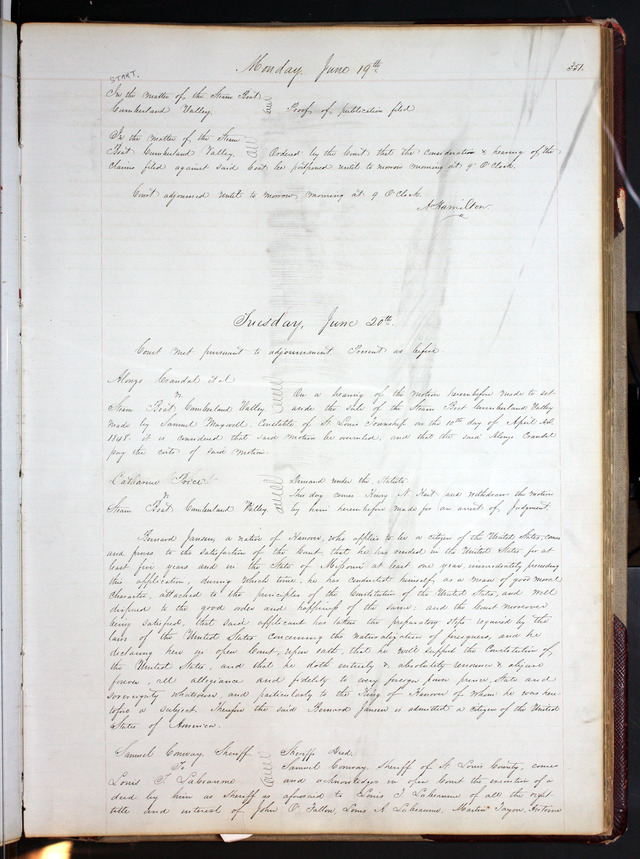 Monday June 19th.
351.
START.
In the matter of the Steam Boat
Cumberland Valley. Proof of publication filed
In the matter of the Steam
Boat Cumberland Valley. Ordered by the Court that the consideration & hearing of the
claims filed against said boat be postponed until to morrow morning at 9 O'Clock.
Court adjourned until to morrow morning at 9 O'Clock
A Hamilton
Tuesday, June 20th.
Court met pursuant to adjournment. Present as before
Alonzo Crandal et al
vs. On a hearing of the motion hereinbefore made to set
Steam Boat Cumberland Valley. aside the sale of the Steam Boat Cumberland Valley
made by Samuel Maxwell, Constable of St Louis Township on the 10th day of April A.D.
1848. it is considered that said motion be overruled, and that the said Alonzo Crandal
pay the costs of said motion.
Catharine Price Demand under the Statute.
vs. This day comes Henry A Hart and withdraws the motion
Steam Boat Cumberland Valley by him hereinbefore made for an arrest of Judgment
Bernard Jansen, a native of Hanover, who applies to be a citizen of the United States, comes
and proves to the satisfaction of the Court, that he has resided in the United States for at
least five years and in the State of Missouri at least one year immediately preceding
this application, during which time, he has conducted himself as a man of good moral
character, attached to the principles of the Constitution of the United States, and well
disposed to the good order and happiness of the same: and the Court moreover
being satisfied, that said applicant has taken the preparatory steps required by the
laws of the United States concerning the naturalization of foreigners, and he
declaring here in open Court, upon oath, that he will support the Constitution of
the United States, and that he doth entirely & absolutely renounce & abjure
forever, all allegiance and fidelity to every foreign power prince, State and
sovereignty whatsoever, and particularly to the King of Hanover of whom he was here
tofore a subject. Therefore the said Bernard Jansen is admitted a citizen of the United
States of America.
Samuel Conway Sheriff Sheriffs Deed.
To Samuel Conway, Sheriff of St Louis County, comes
Louis T. Labeaume and acknowledges in open Court the execution of a
deed by him as Sheriff as aforesaid to Louis T Labeaume of all the right
title and interest of John O. Fallon, Louis A. Labeaume, Martin Tayon, Antoine